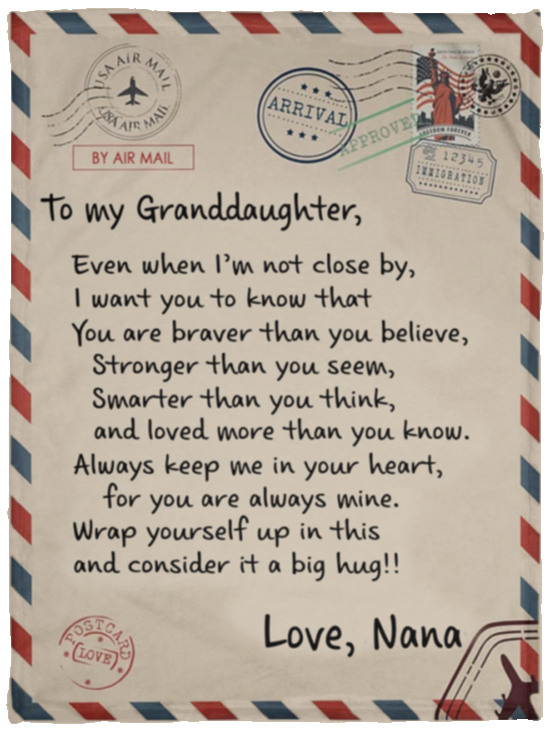 USA AIR MAIL
USA AIR MAIL
BY AIR MAIL
ARRIVAL
APPROVED
FREEDOM FOREVER
12345
IMMIGRATION
To my Granddaughter,
Even when I'm not close by,
I want you to know that
You are braver than you believe,
Stronger than you seem,
Smarter than you think,
and loved more than you know.
Always keep me in your heart,
for you are always mine.
Wrap yourself up in this
and consider it a big hug!!
Love, Nana
POSTCARD
LOVE